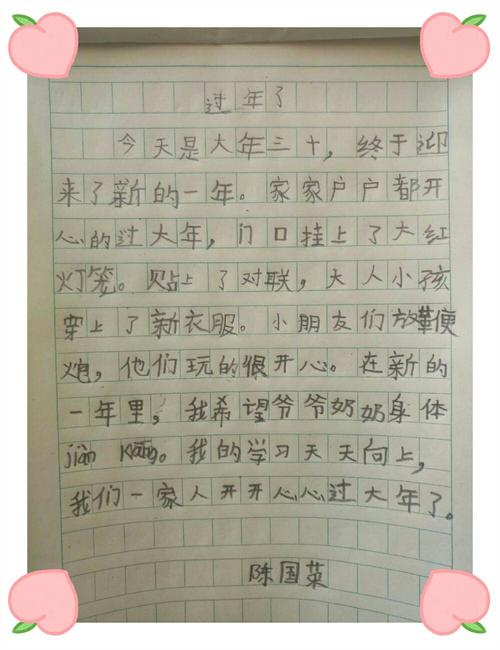 过年了
今天是大年三十，终于迎
来了新的一年。家家户户都开
心的过大年，门口挂上了大红
灯笼。贴上了对联，大人小孩
穿上了新衣服。小朋友们放鞭
炮，他们玩的很开心。在新的
一年里，我希望爷爷奶奶身体
jiàn kāng。我的学习天天向上，
我们一家人开开心心过大年了。
陈国英